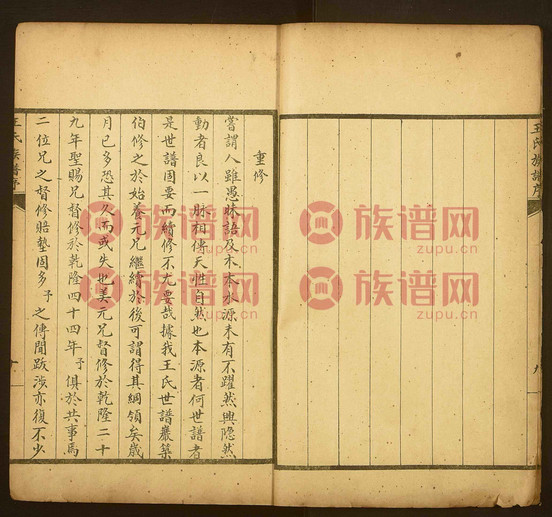 王氏族譜序
九
重修
嘗謂人雖愚昧語及木本水源未有不躍然興隱然
動者良以一脉相傳天性自然也本源者何世譜者
是世譜固要而續修不尤要哉據我王氏世譜嚴築
伯修之於始養元兄繼續於後可謂得其綱領矣歲
月已多恐其久而或失也美元兄督修於乾隆二十
九年聖賜兄督修於乾隆四十四年予俱於共事焉
二位兄之督修賠墊固多予之傳聞跋涉亦復不少
王氏族譜序
族谱网
zupu.cn
族谱网
zupu.cn
族谱网
zupu.cn
族谱网
zupu.cn
族谱网
zupu.cn
族谱网
zupu.cn